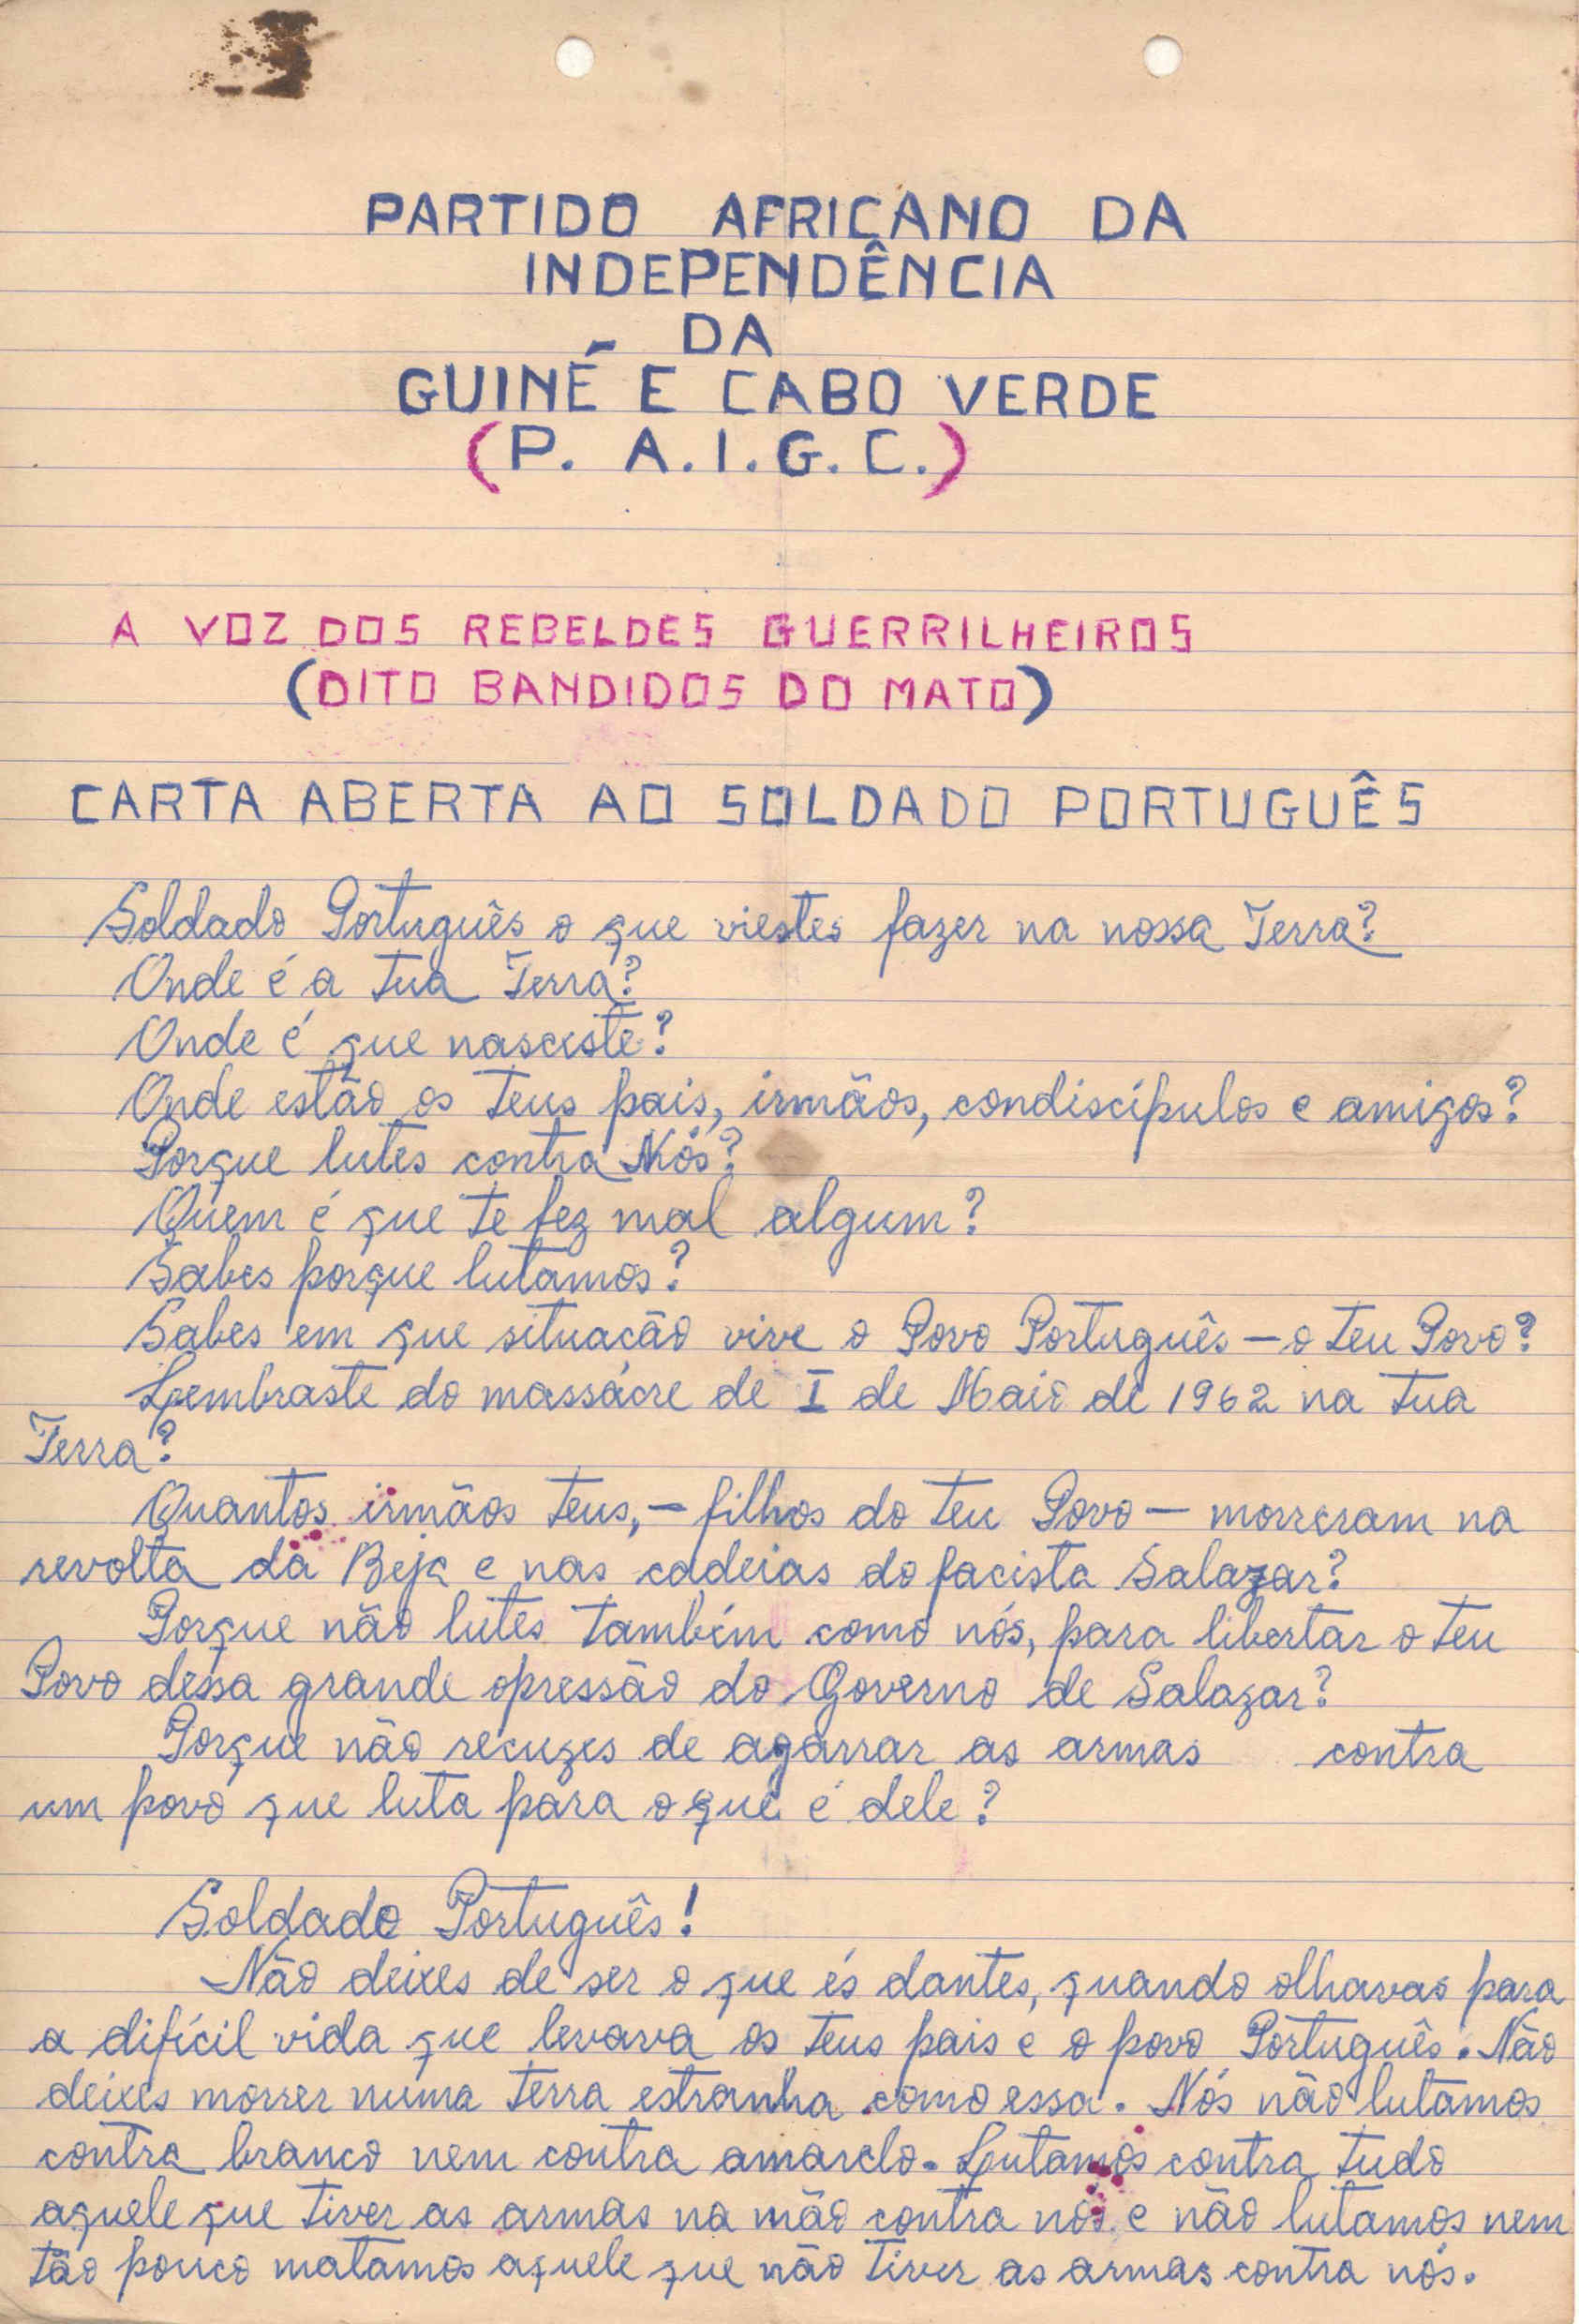 PARTIDO AFRICANO DA
INDEPENDÊNCIA
DA
GUINÉ E CABO VERDE
(P. A.I.G.C.)
A VOZ DOS REBELDES GUERRILHEIROS
(DITO BANDIDOS DO MATO)
CARTA ABERTA AO SOLDADO PORTUGUÊS
Soldado Português o que viestes fazer na nossa Terra?
Onde é a tua Terra?
Onde é que nasceste?
Onde estão os teus pais, irmãos, condiscípulos e amigos?
Porque lutes contra Nós?
Quem é que te fez mal algum?
Sabes porque lutamos?
Sabes em que situacão vive o Povo Português — o teu Povo?
Lembraste do massácre de I de Maio de 1962 na tua
Terra?
Quantos irmãos teus, — filhos do teu Povo — morreram na
revolta da Beja e nas cadeias do facista Salazar?
Porque não lutes também como nós, para libertar o teu
Povo dessa grande opressão do Governo de Salazar?
Porque não recuzes de agarrar as armas contra
um povo que luta para o que é dele?
Soldado Português!
Não deixes de ser o que és dantes, quando olhavas para
a difícil vida que levava os teus pais e o povo Português. Não
deixes morrer numa terra estranha como essa. Nós não lutamos
contra branco nem contra amarelo. Lutamos contra tudo
aquele que tiver as armas na mão contra nós e não lutamos nem
tão pouco matamos aquele que não tiver as armas contra nós.